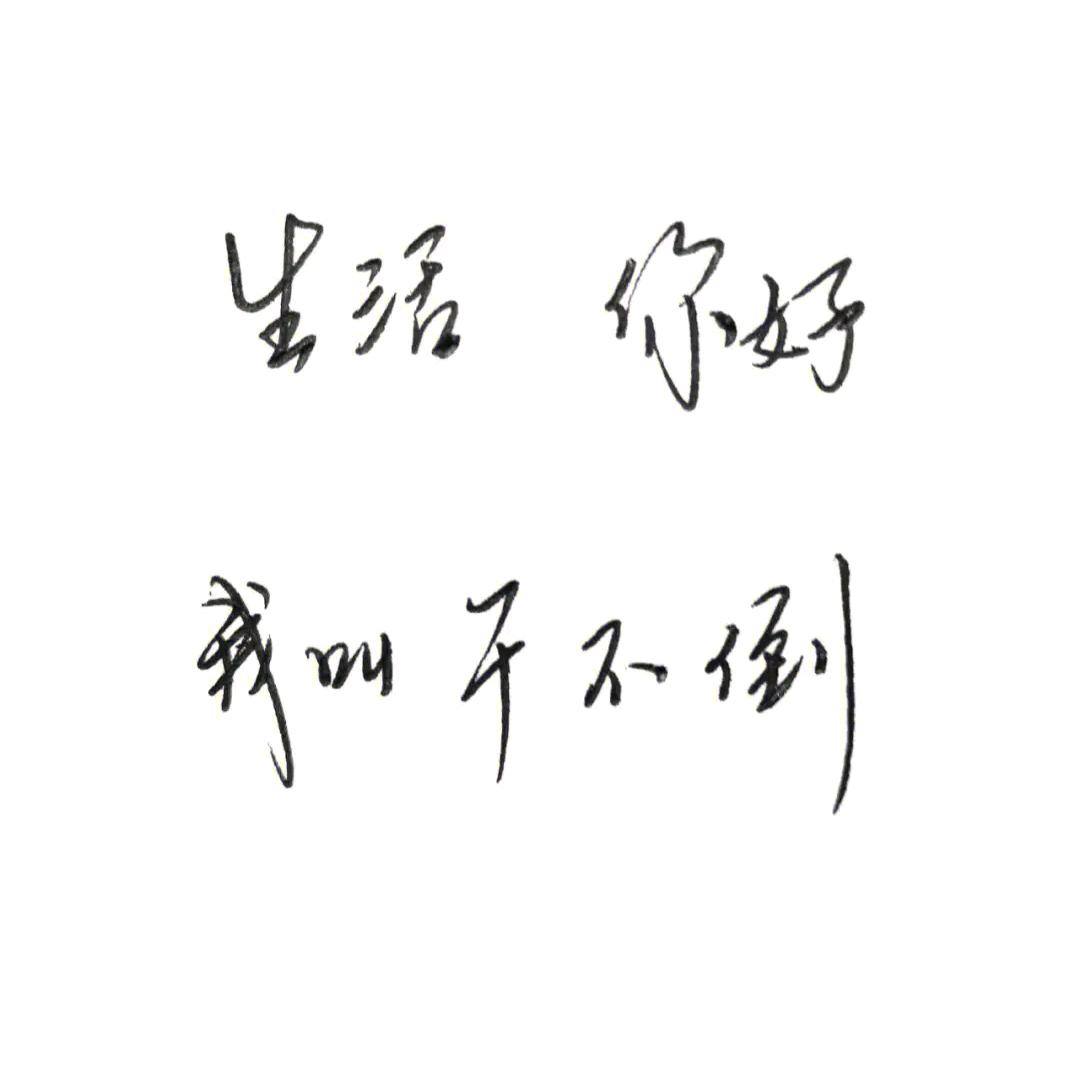 生活 你好
我叫 干 不 倒